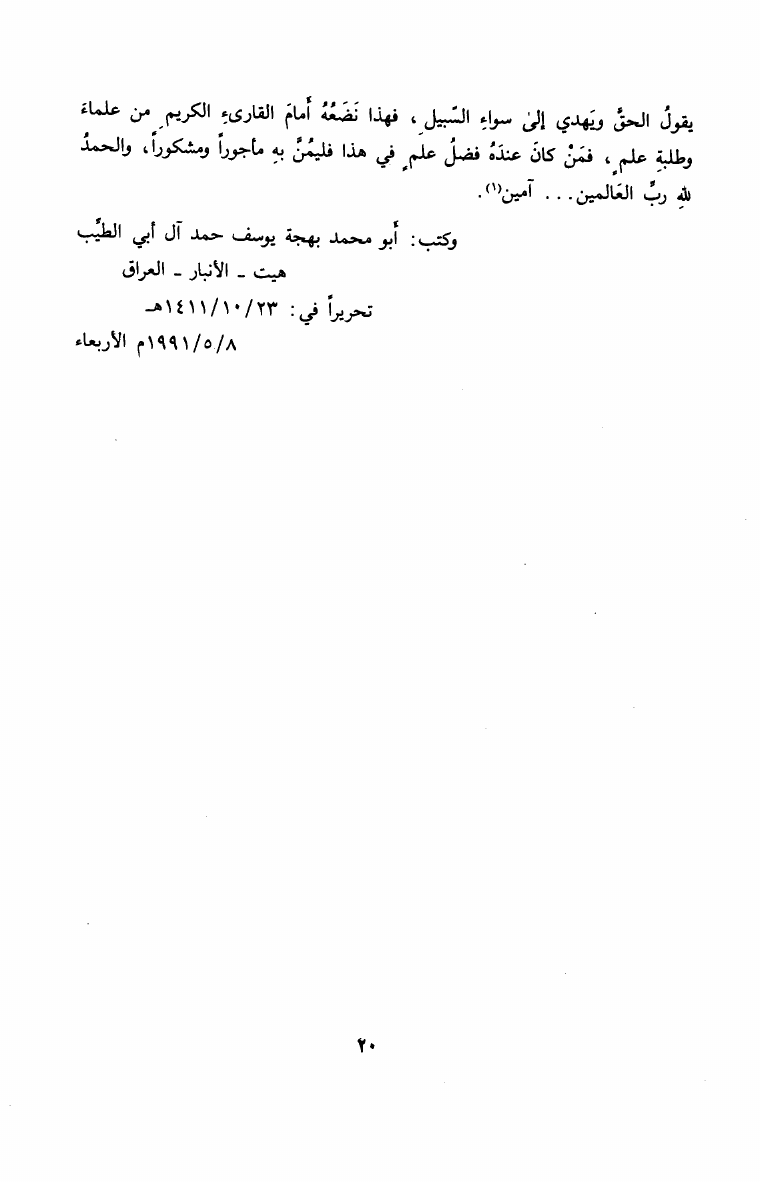 يقولُ الحقَّ ويَهدي إلىٰ سواءِ السّبيلِ، فهذا نَضَعُهُ أَمامَ القارىءِ الكريمِ من علماءَ
وطلبةِ علمٍ، فمَنْ كانَ عندَهُ فضلُ علمٍ في هذا فليمُنَّ بهِ مأجوراً ومشكوراً، والحمدُ
للهِ ربِّ العَالمين... آمين(١).
وكتب: أَبو محمد بهجة يوسف حمد آل أبي الطيِّب
هيت - الأنبار - العراق
تحريراً في: ١٤١١/١٠/٢٣هـ
١٩٩١/٥/٨م الأربعاء
٢٠